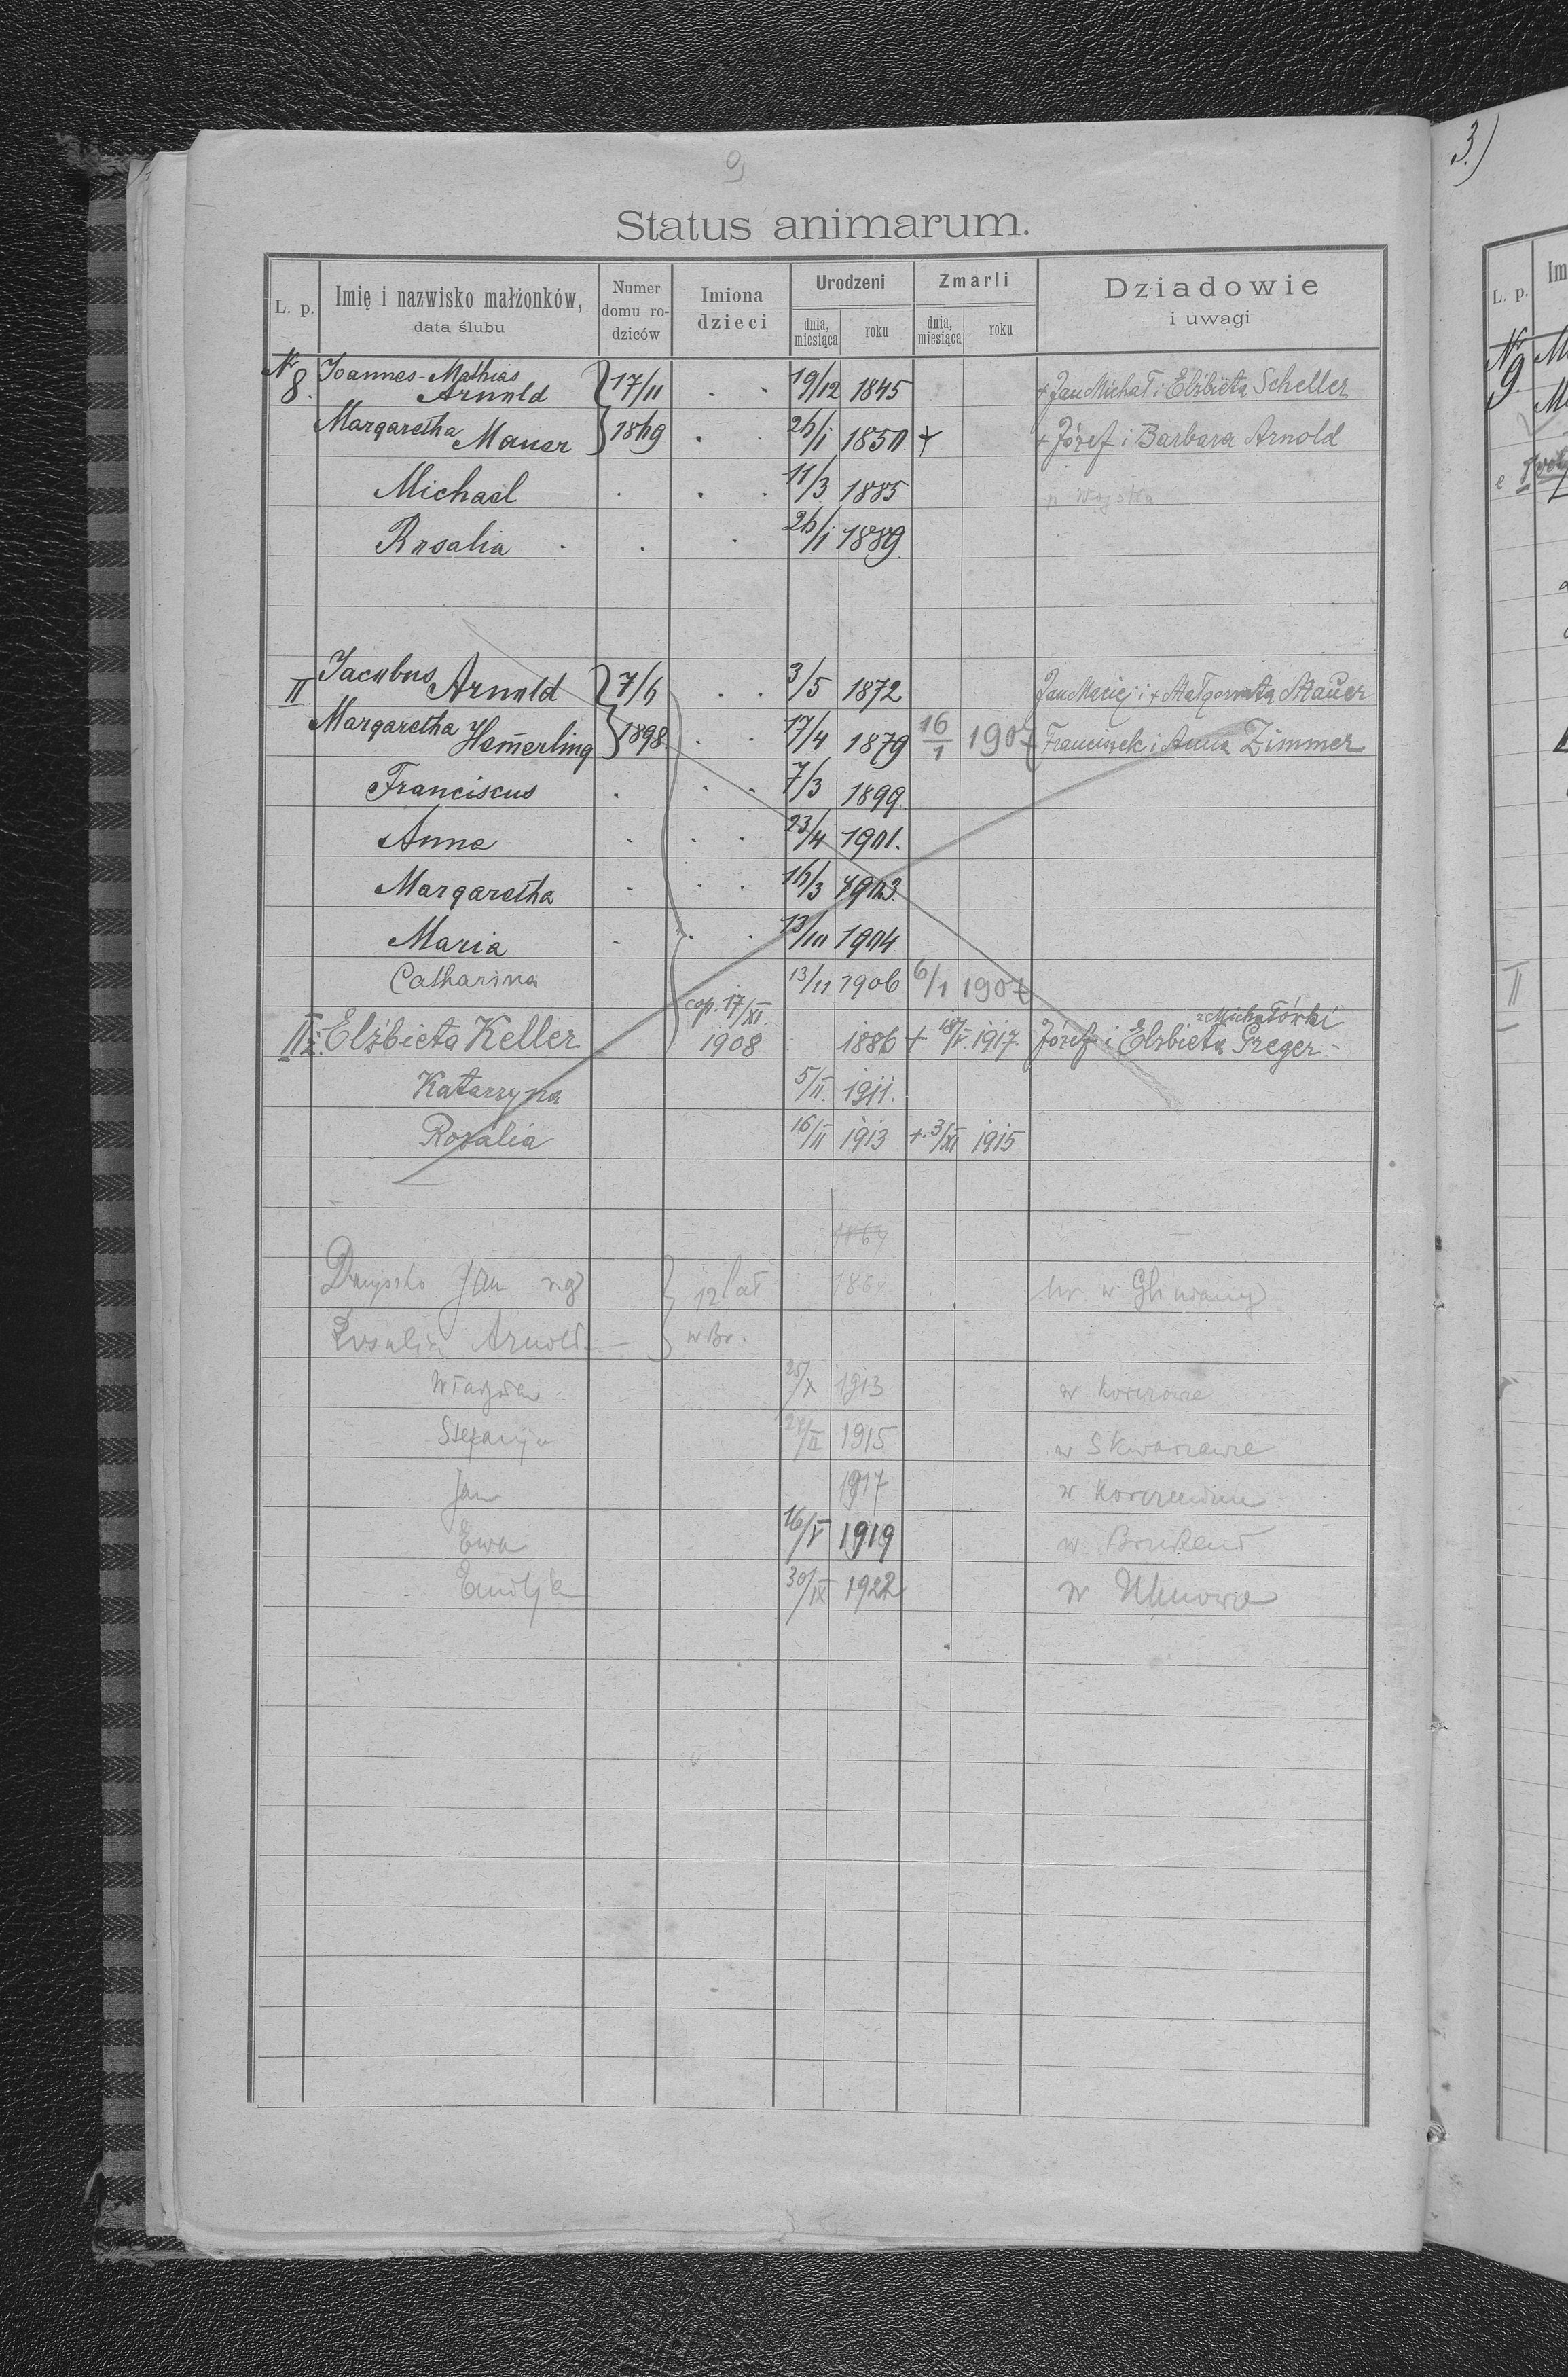 Status animarum.
L. p. Imię i nazwisko małżonków, data ślubu Numer domu rodziców Imiona dzieci Urodzeni dnia, miesiąca roku Zmarli dnia, miesiąca roku Dziadowie i uwagi
Nr 8. Joannes-Mathias Arnold 17/11 19/12 1845 + Jan Michał i Elżbieta Scheller
Margaretha Mauer 1869 26/1 1850 + + Józef i Barbara Arnold
Michael 11/3 1885 Wojska
Rosalia 26/1 1889.
II Jacobus Arnold 7/6 3/5 1872 Jan Maciej i + Małgorzata Mauer
Margaretha Hem̄erling 1898 17/4 1879 16/1 1907 Franciszek i Anna Zimmer
Franciscus 7/3 1899.
Anna 23/4 1901.
Margaretha 16/3 1903.
Maria 13/10 1904.
Catharina 13/11 1906 6/1 1907
cop. 17/XI. z Michałówki
II 2. Elżbieta Keller 1908 1886 + 18/V. 1917 Józef i Elżbieta Greger -
Katarzyna 5/II. 1911.
Rozalia 16/II 1913 +. 3/XI 1915
1864
Jan 12 lat 186 ur w Gliniany
Rosalia Arnold w Br.
25/X 1913 w
Stefanija 1915 w Skwarzawie
Jan 1917 w
Ewa 16/V 1919 w Brukent
Emilja 30/IX 1922 w
3.)
L. p. Im
Nr 9. M
M
II